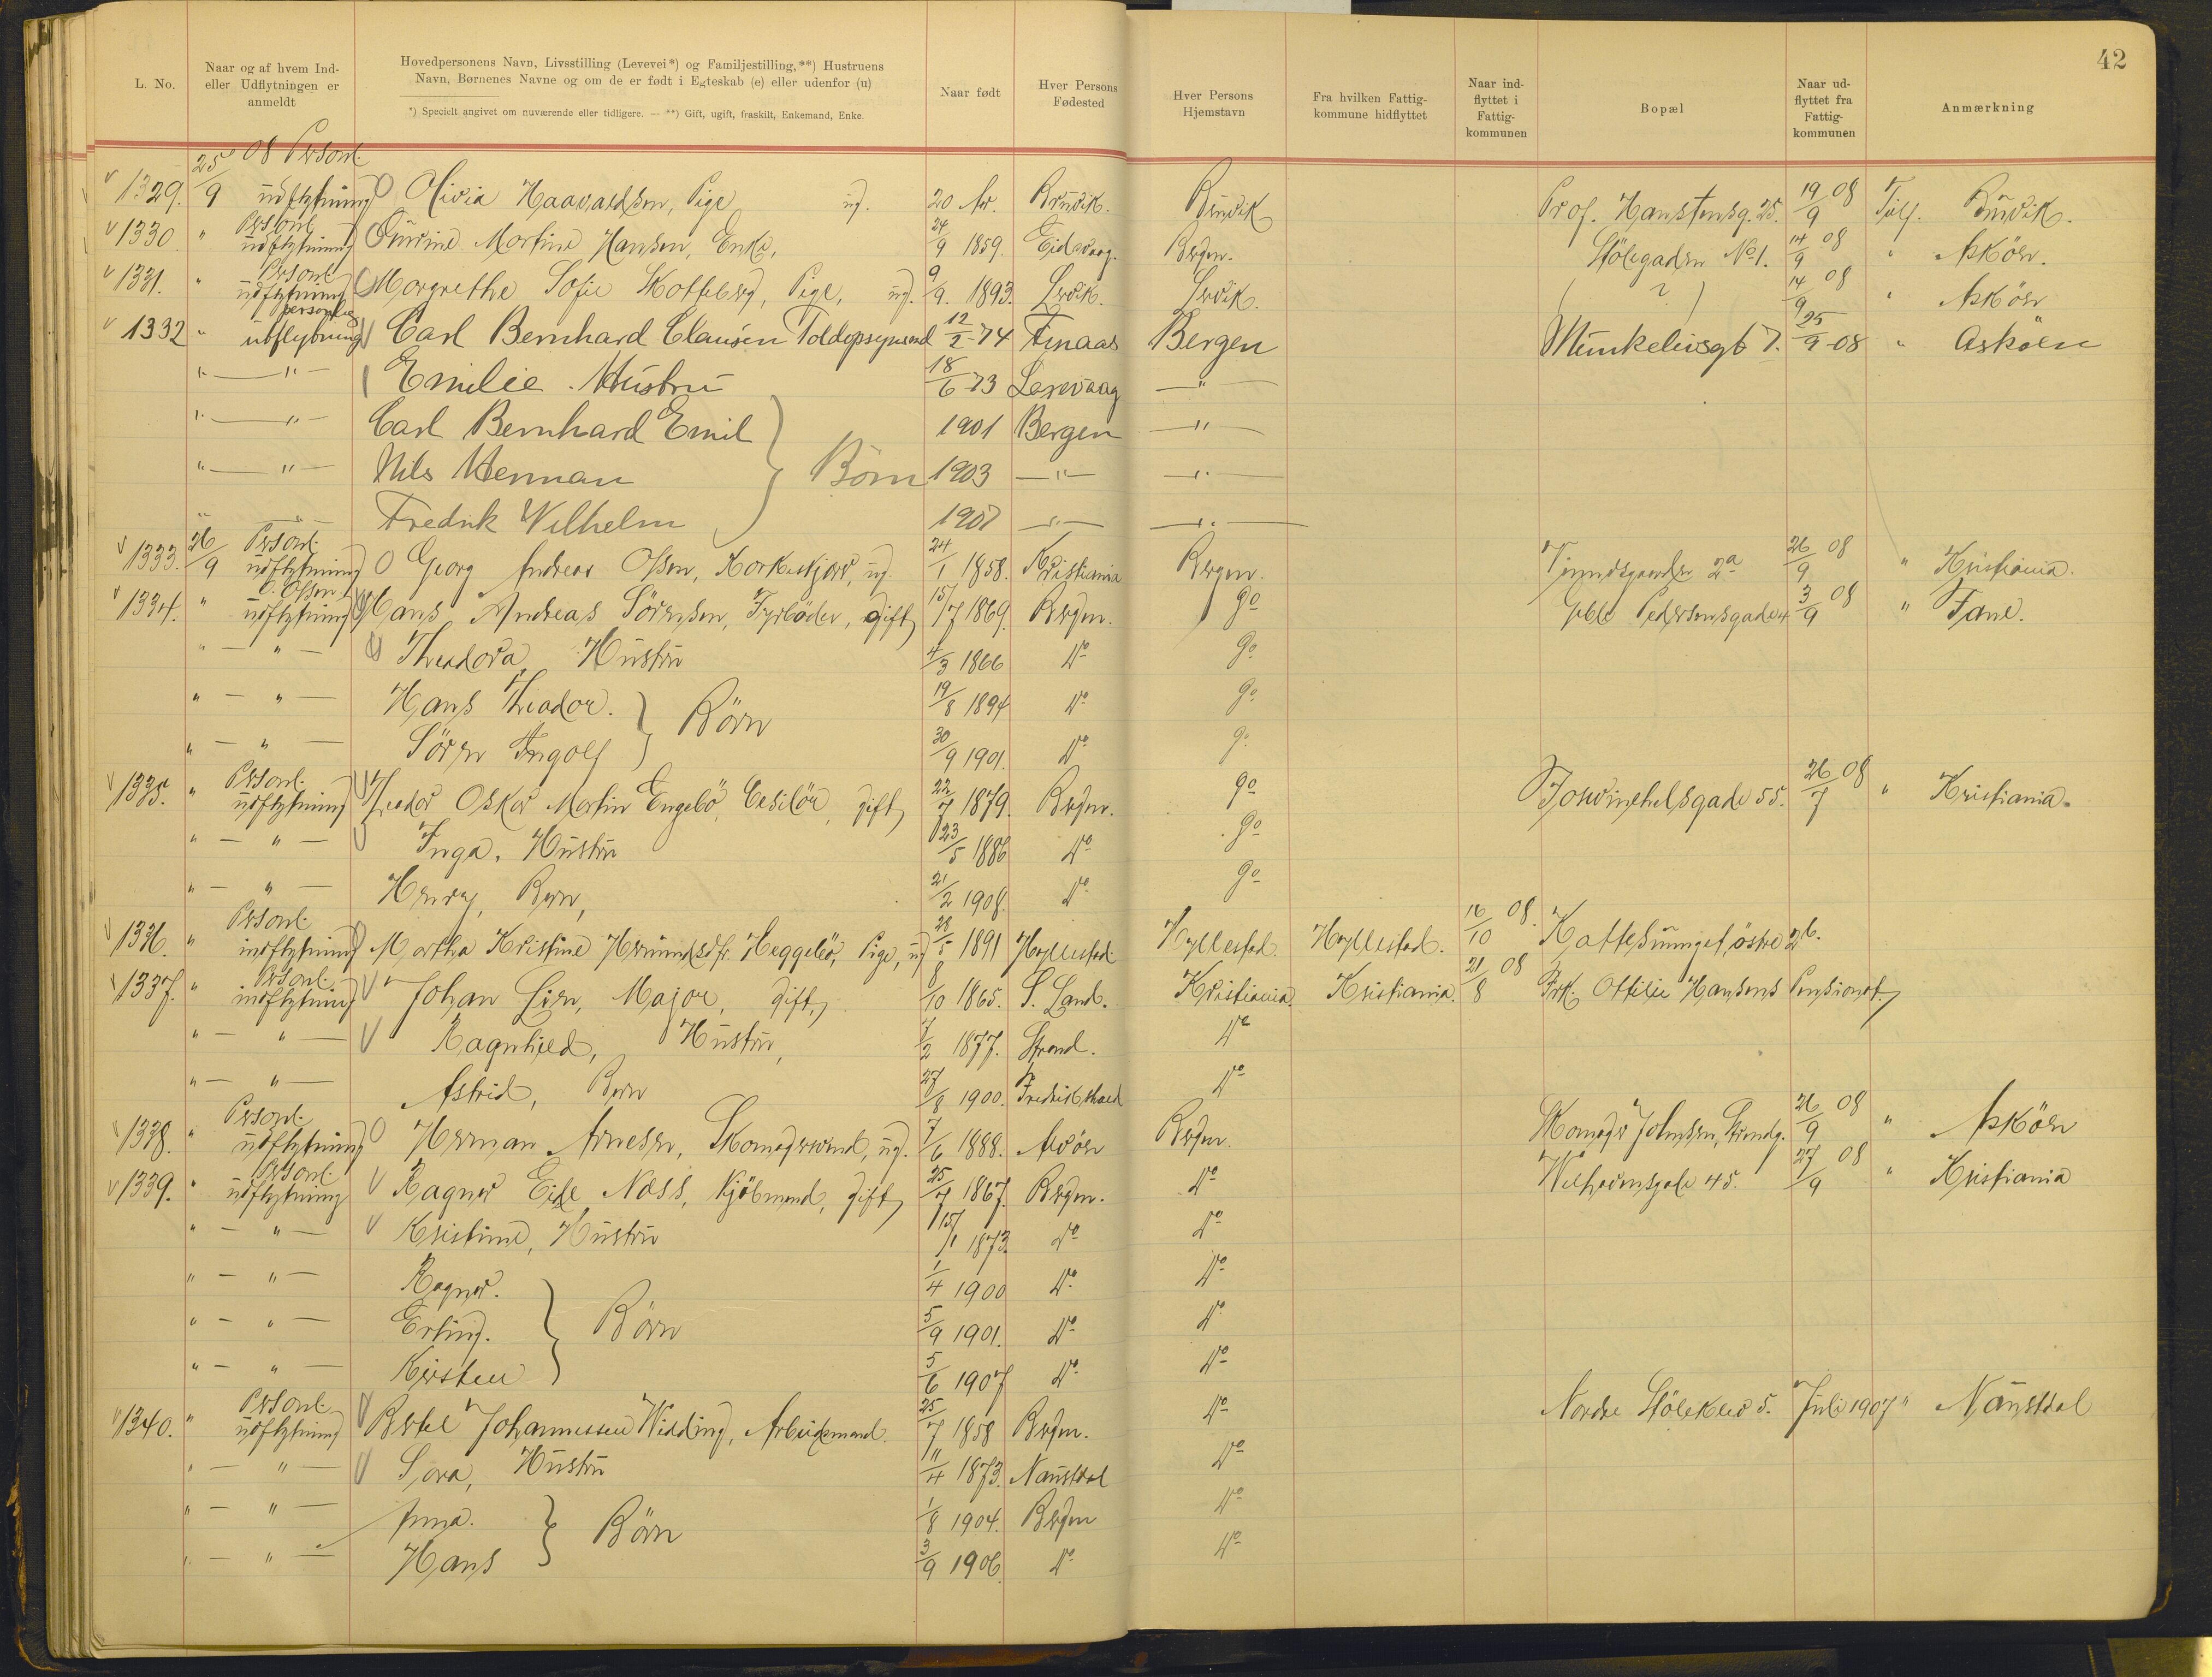 42
L. No.
Naar og af hvem Ind- eller Udflytningen er anmeldt
Hovedpersonens Navn, Livsstilling (Levevei*) og Familjestilling,**) Hustruens Navn, Børnenes Navne og om de er født i Egteskab (e) eller udenfor (u)
*) Specielt angivet om nuværende eller tidligere. — **) Gift, ugift, fraskilt, Enkemand, Enke.
Naar født
Hver Persons Fødested
Hver Persons Hjemstavn
Fra hvilken Fattig- kommune hidflyttet
Naar ind- flyttet i Fattig- kommunen
Bopæl
Naar ud- flyttet fra Fattig- kommunen
Anmærkning
1329. 25/9 08 Personl. udflytning Olivia Haavardsen, Pige ug. 20 Ar. Bruvik. Bruvik Prof. Hanstensg. 25. 19/9 08 Bruvik.
1330 " Personl. udflytning Martine Hansen, Enke, 24/9 1859. Eidsvaag. Bergen. Stölegaden No 1. 14/9 08 " Asköen.
1331. " Personl. udflytning Margrethe Sofie Kotteberg, Pige, ug. 9/9. 1893. Lervik. Lervik. ( ? ) 14/9 08 " Asköen
1332 " personlig utflytning Carl Bernhard Clausen Toldopsynsmd 12/2-74 Finaas Bergen Munkelivsgt 7. 25/9-08 " Askøen
" — " — Emilie Hustru 18/6-73 Laxevaag — " —
" — " — Carl Bernhard Emil } 1901 Bergen — " —
" — " — Nils Herman } Børn 1903 — " — — " —
" — " — Fredrik Wilhelm } 1907 — " — — " —
1333. 26/9 Personl. udflytning Georg Andreas Olsen, Korkeskjær, ug. 24/1 1858. Kristiania Bergen. 2a 26/9 08 " Kristiania.
1334. " O. Olsen udflytning Hans Andreas Sörensen, Fyrböder, gift, 15/7 1869. Bergen. do Geble Pedersensgade 4 3/9 08 " Fane.
" — " — Theodora Hustru 4/3 1866 do do
" — " — Hans Theodor. } Börn 19/8 1894 do do
" — " — Sören Ingolf } 30/9 1901. do do
1335. " Personl. udflytning Theodor Oskar Martin Engebö, Ciselör, gift, 22/7 1879. Bergen. do 55. 26/7 08 " Kristiania.
" — " — Inga, Hustru 23/5 1886 do do
" — " — Henry, Barn, 21/2 1908. do do
1336. " Personl. indflytning Martha Kristine Hermundsdtr. Heggebö, Pige, ug 28/5 1891 Hyllestad Hyllestad. Hyllestad. 16/10 08. Kattesmuget östre 26.
1337. " Personl. indflytning Johan Lien, Major, gift, 8/10 1865. S. Land. Kristiania. Kristiania. 21/8 08 Frk. Ottilie Hansens Pensionat.
" — " — Ragnhild, Hustru, 7/2 1877. Strand. do
" — " — Astrid, Barn 27/8 1900. Fredrikshald do
1338. " Personl. udflytning Herman Arnesen, Skomagersvend, ug. 7/6 1888. Avöen Bergen. Skomager Johnsen, Strandg. 26/9 08 " Asköen
1339. " Personl. udflytning Ragnar Eide Næss, Kjöbmand, gift, 25/7 1867. Bergen. do 45. 27/9 08 " Kristiania
" — " — Kristine, Hustru 15/1 1873. do do
" — " — Ragnar. } 1/4 1900 do do
" — " — Erling. } Börn 5/9 1901. do do
" — " — Kirsten } 5/6 1907 do do
1340. " Personl. udflytning Bertel Johannessen Widding, Arbeidsmand. 25/7 1858 Bergen. do Nordre Stölekleiv 5. Juli 1907 " Naustdal
" — " — Sara, Hustru 11/4 1873. Naustdal do
" — " — Anna. } Börn 1/8 1904. Bergen do
" — " — Hans } 3/9 1906. do do